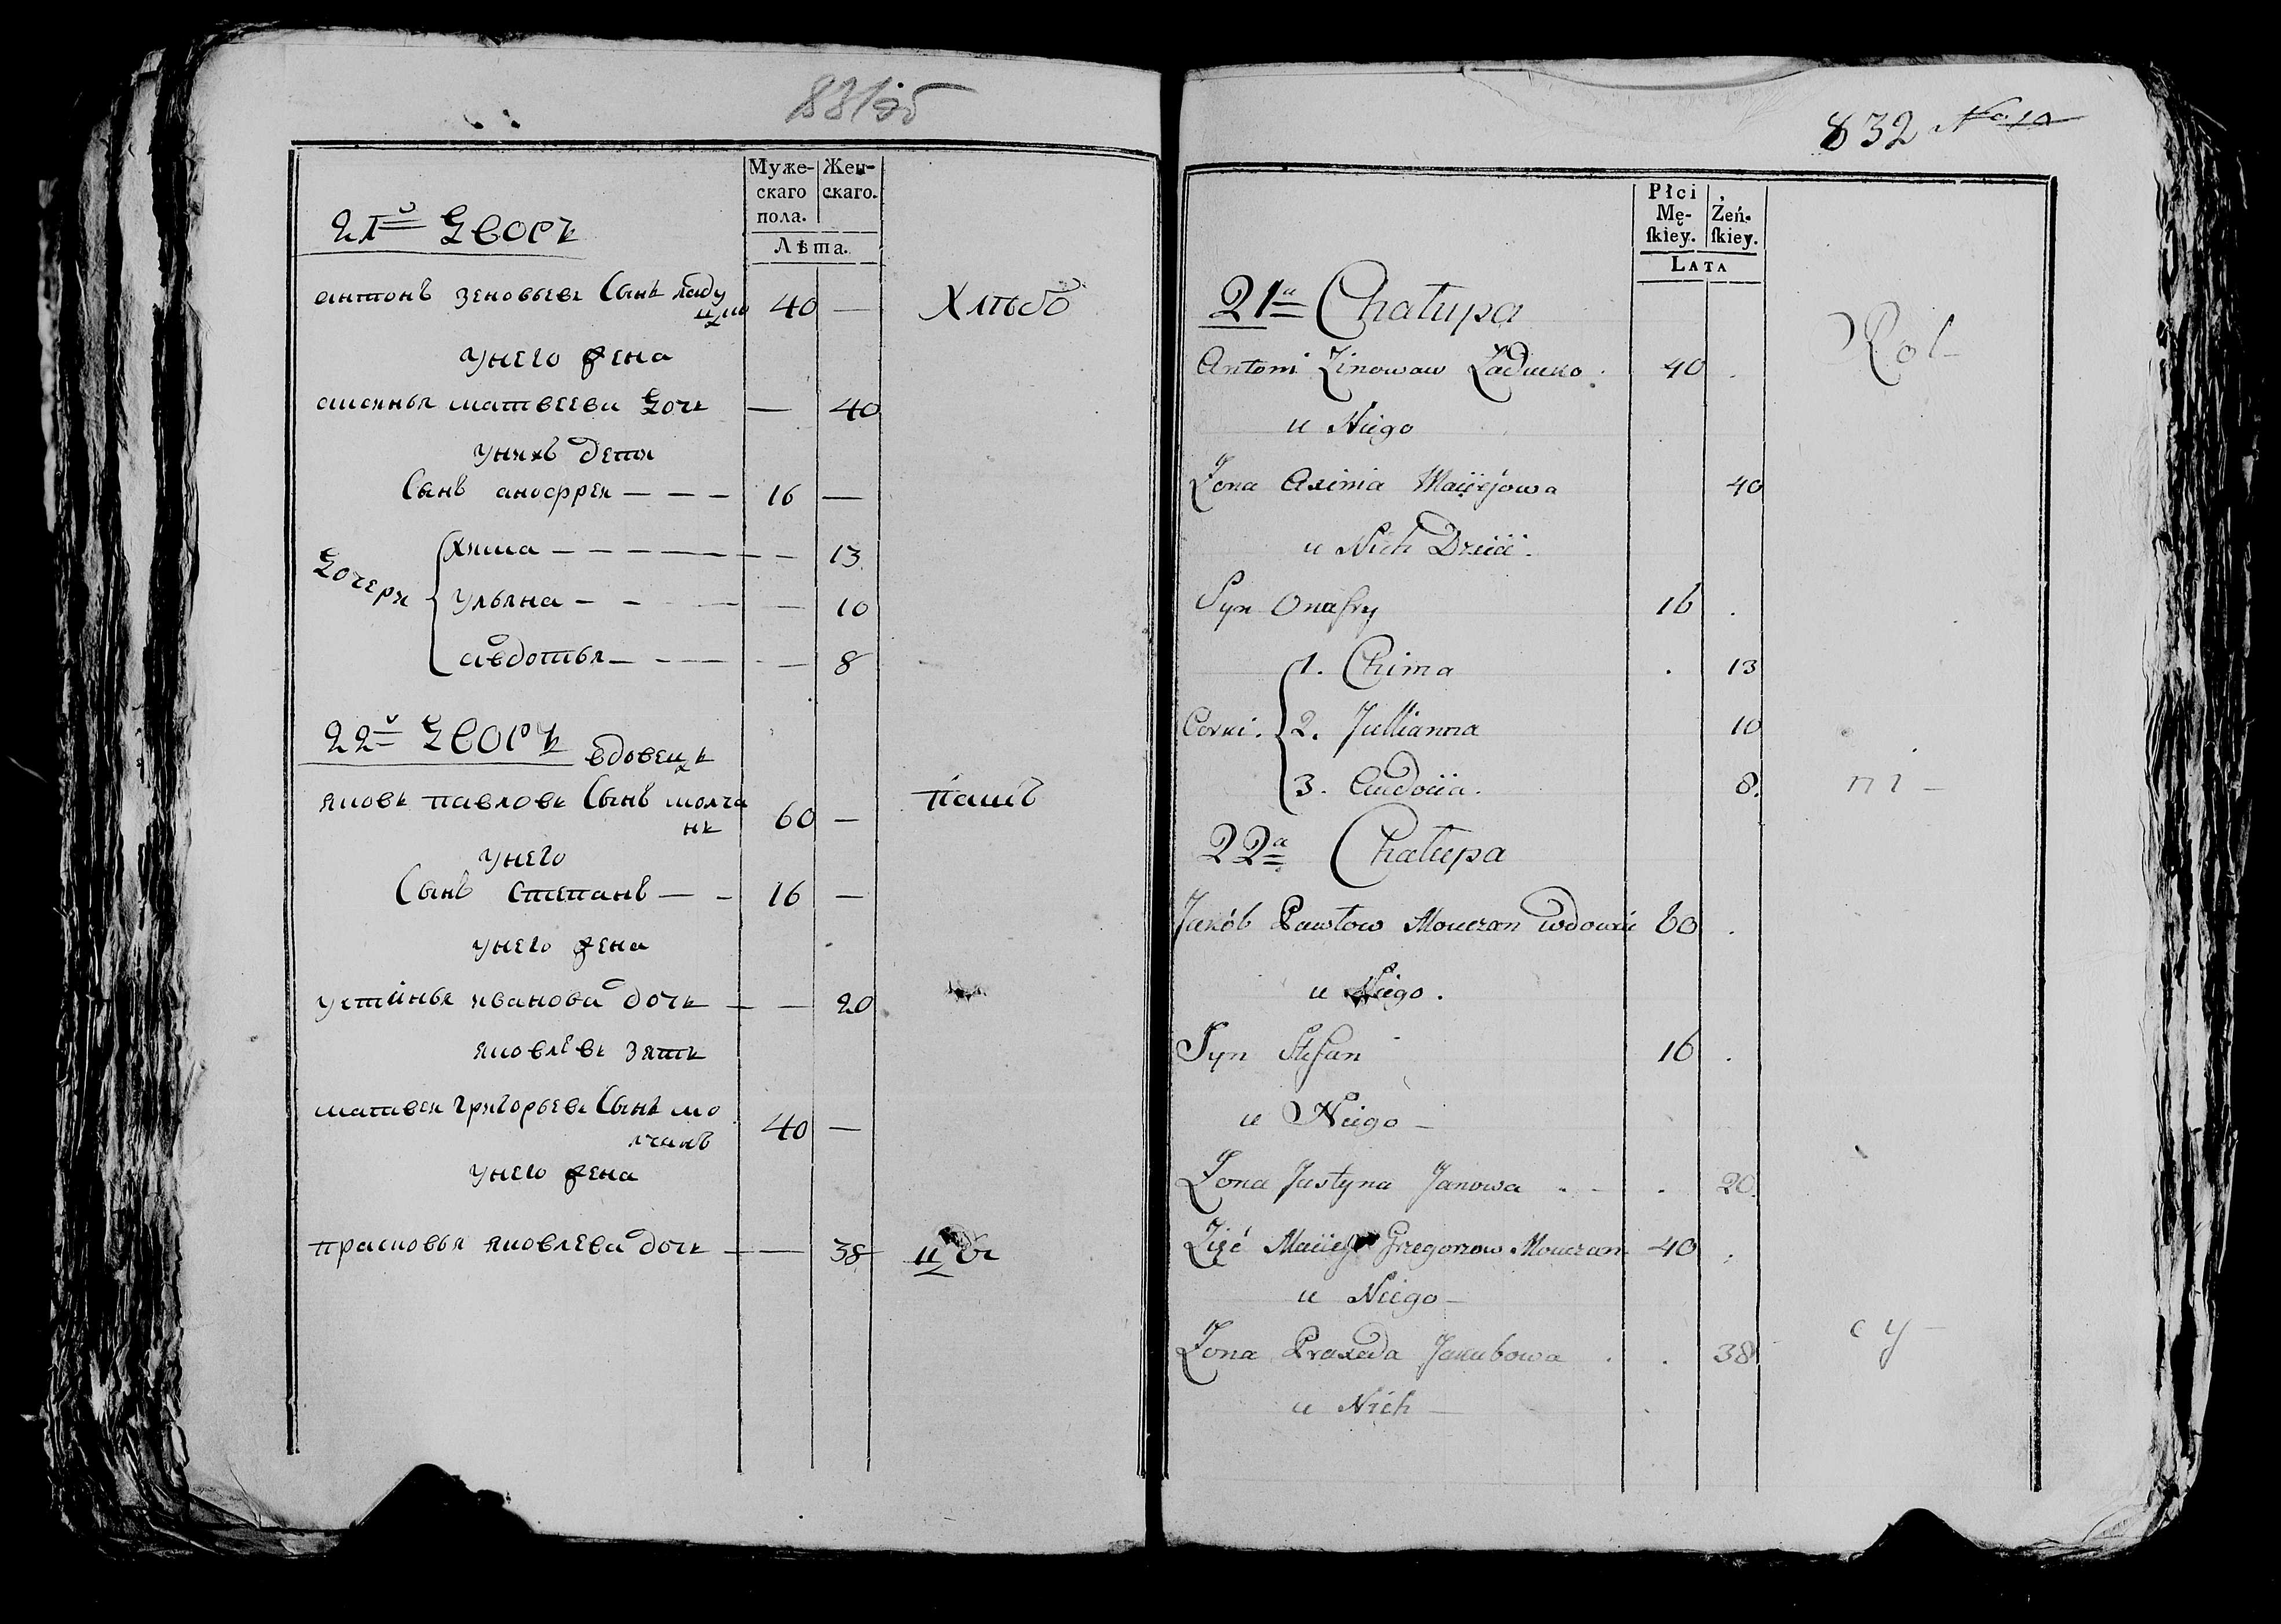 831об
Муже-
скаго
пола.
Жен-
скаго.
Лѣта.
21й Дворъ
антонъ зеновьевъ Сынъ ладу
цко 40 — Хлѣбо
унего жена
аксинья матвеева Дочь — 40
унихъ дети
Сынъ анофреи — — — 16 —
Дочери
хима — — — — — — — 13
ульяна — — — — — 10
авдотья — — — — — 8
22й Дворъ вдовецъ
яковъ павловъ Сынъ молча
нъ 60 — паш
унего
Сынъ степанъ — — 16 —
унего жена
устинья иванова дочь — — 20
яковлевъ зять
матвеи григорьевъ Сынъ мо
лчанъ 40 —
унего жена
прасковья яковлева дочь — — 38 цы
832 No 10
Płci
Mę-
ſkiey.
Żeń-
ſkiey.
LATA
21a Chałupa
Antoni Zinowow Ładucko. 40 . Rol-
u Niego
Żona Axinia Maciejowa 40
u Nich Dzieci.
Syn Onafry 16 .
Corki.
1. Chima . 13
2. Jullianna 10
3. Audocia. 8. ni-
22a Chałupa
Jakób Pawłow Mouczan wdowiec 60 .
u Niego.
Syn Stefan 16 .
u Niego —
Żona Justyna Janowa . - . 20.
Zięć Maciej Grzegorzow Mouczan 40 .
u Niego —
Żona Praxeda Jakubowa . . 38 cy-
u Nich —